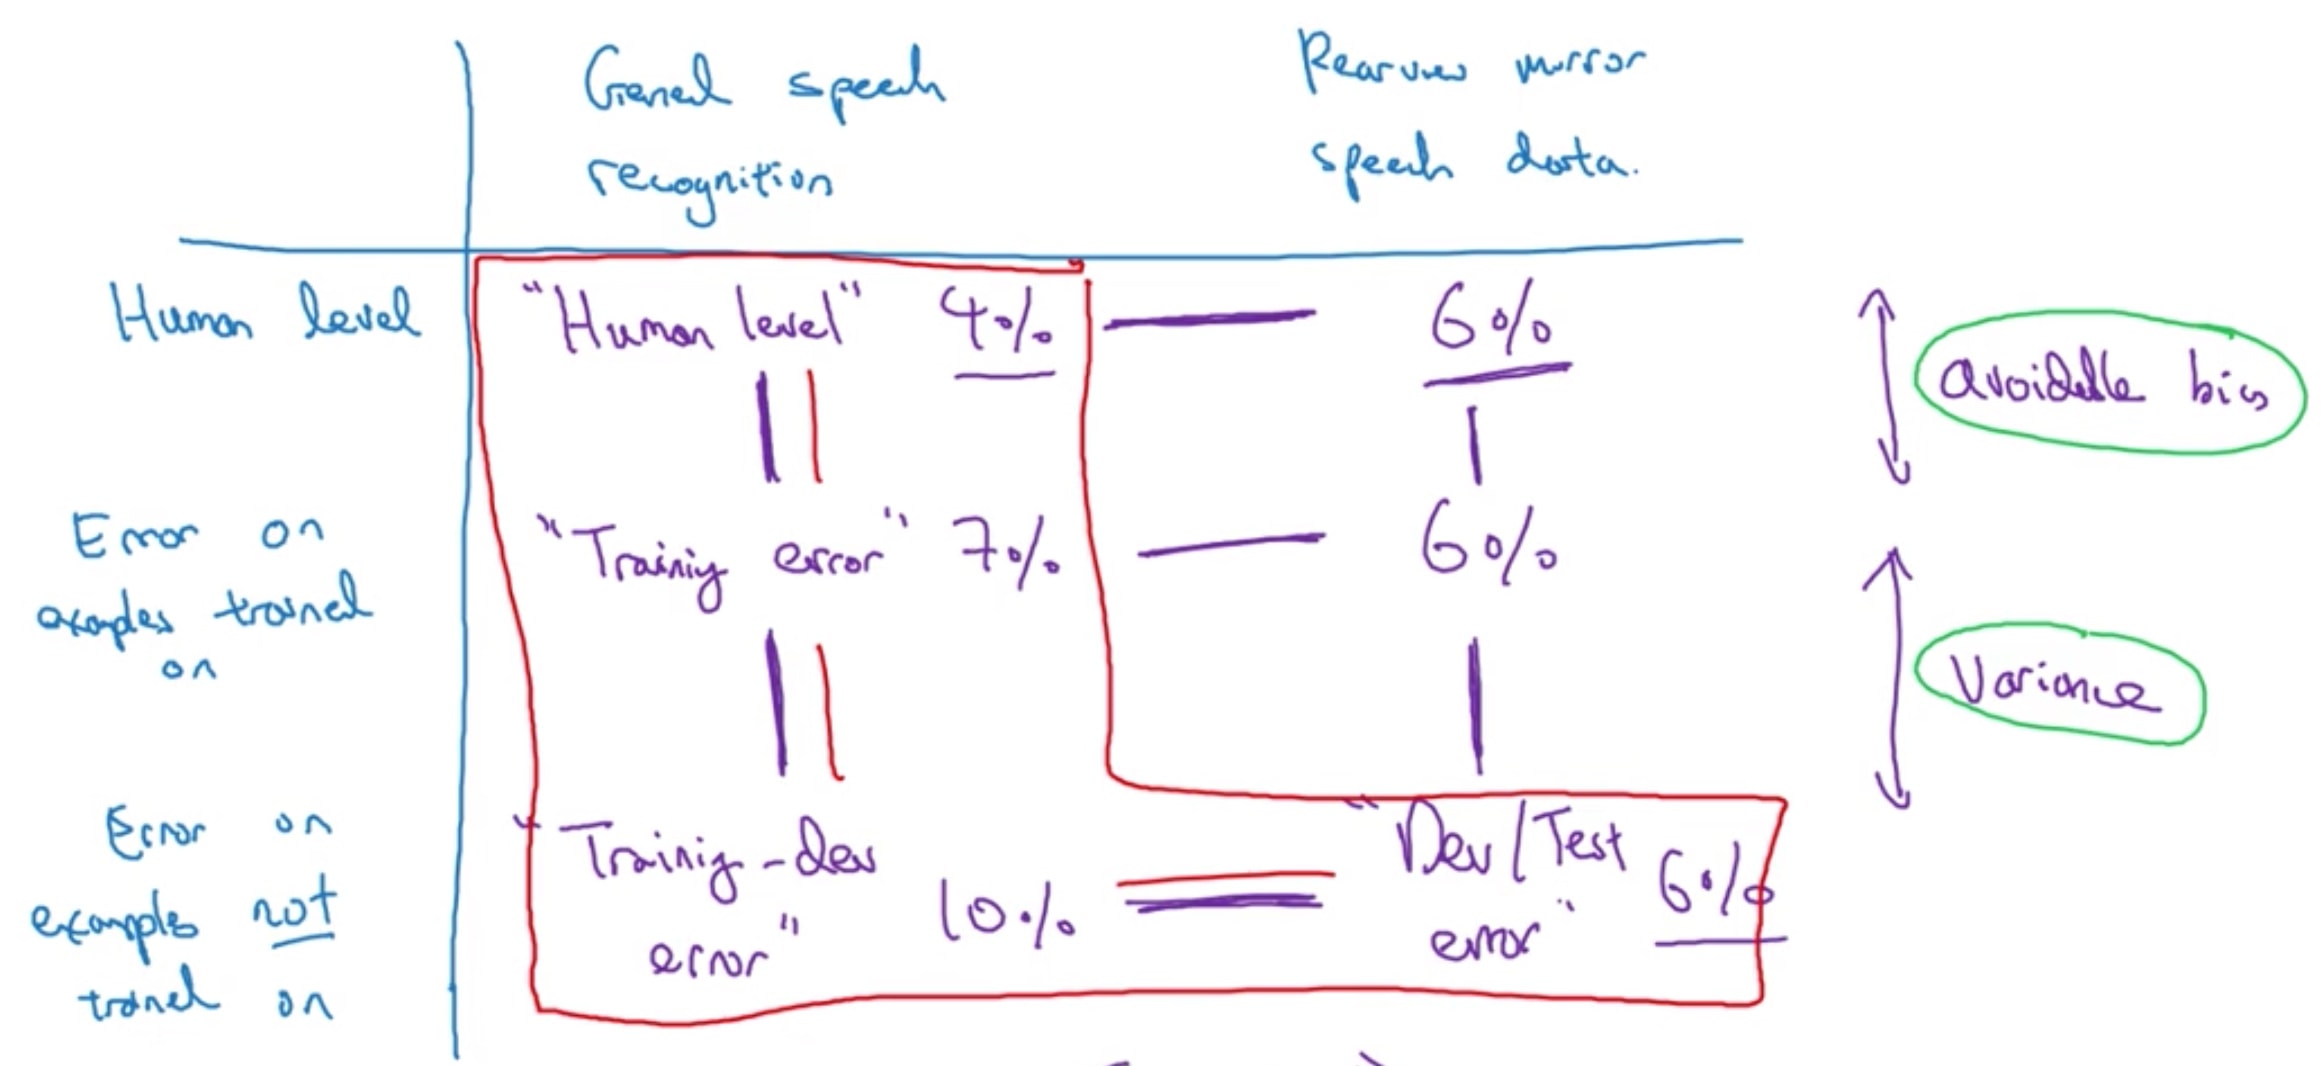 General speech
recognition
Rearview mirror
speech data.
Human level
"Human level" 4%
6%
avoidable bias
Error on
examples trained
on
"Training error" 7%
6%
Variance
Error on
examples not
trained on
"Training-dev
error"
10%
"Dev/Test
error"
6%